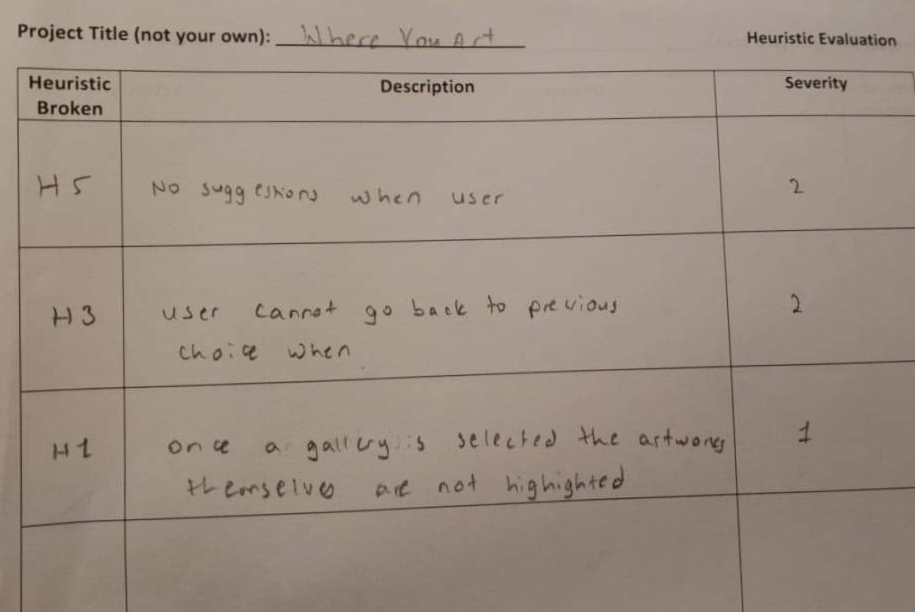 Project Title (not your own): Where You Art
Heuristic Evaluation
Heuristic Broken
Description
Severity
H5
No suggestions when user
2
H3
user cannot go back to previous
choice when
2
H1
once a gallery is selected the artworks
themselves are not highighted
1